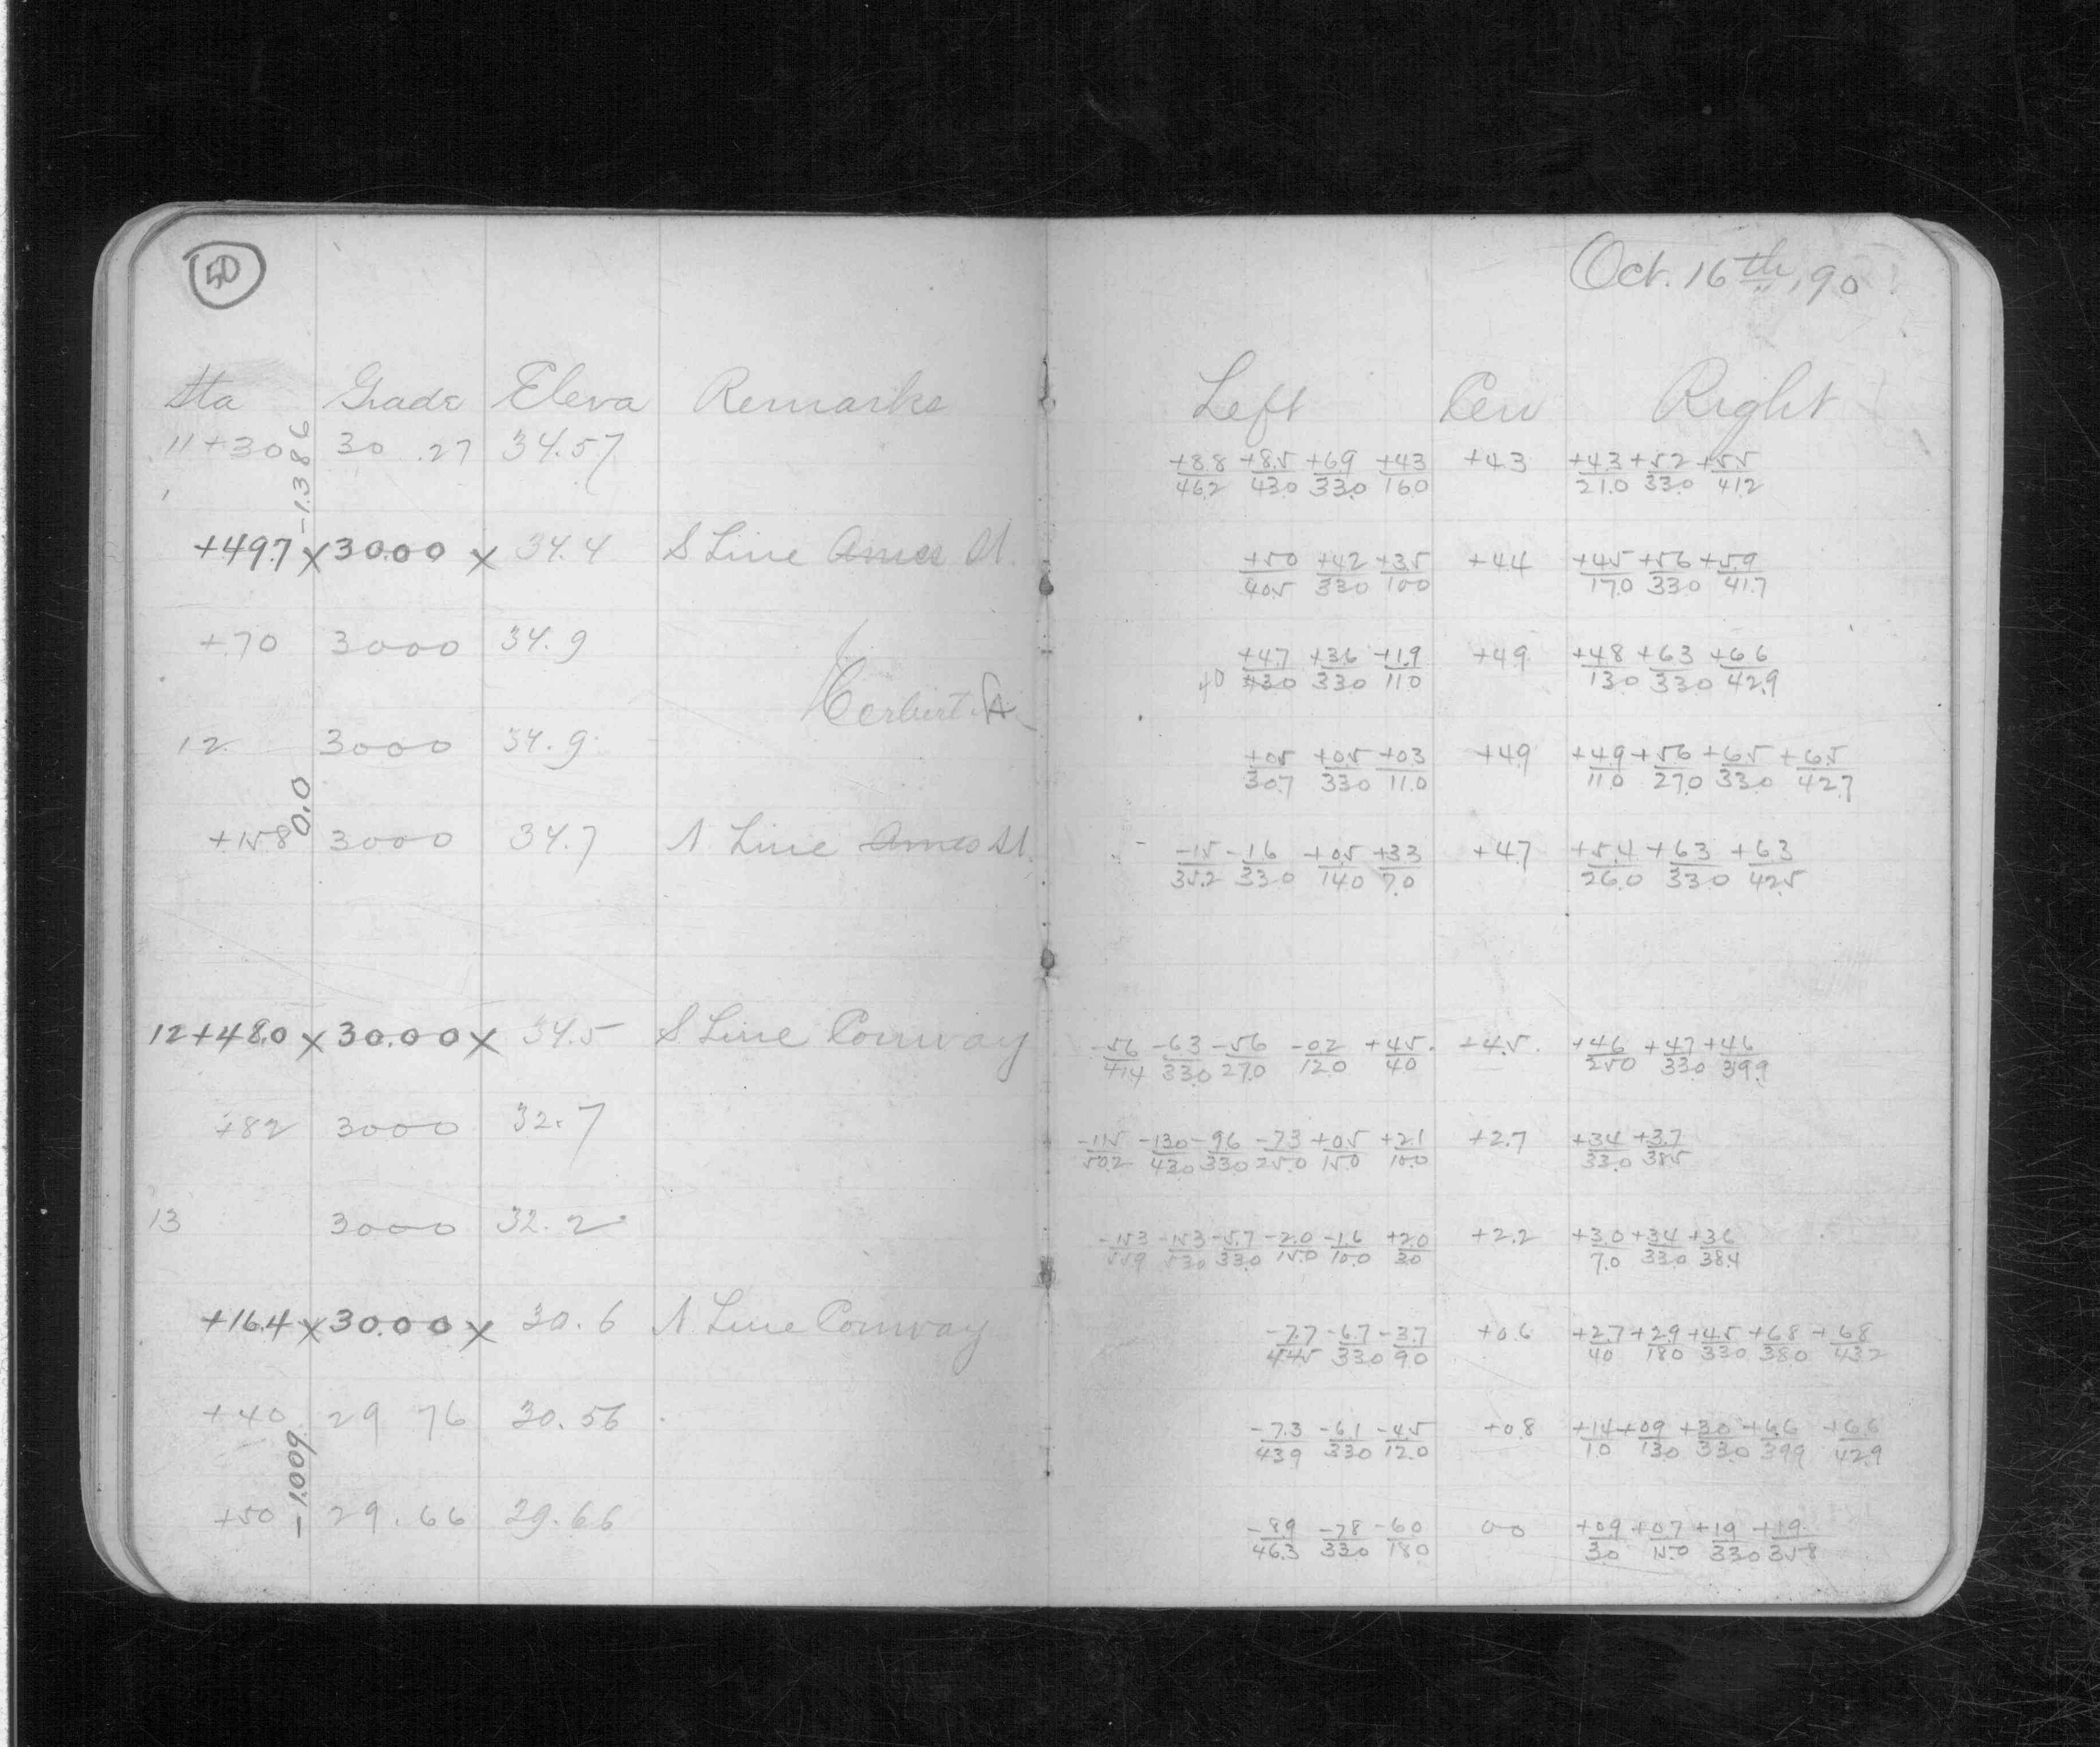 50
Oct. 16th, 90
Sta Grade Eleva Remarks Left Cen Right
-1.386
11+30 30.27 34.57 +8.8/46.2 +8.5/43.0 +6.9/33.0 +4.3/16.0 +4.3 +4.3/21.0 +5.2/33.0 +5.5/41.2
+49.7 x 30.00 x 34.4 S Line Ames St. +5.0/40.5 +4.2/33.0 +3.5/10.0 +4.4 +4.5/17.0 +5.6/33.0 +5.9/41.7
+70 30 00 34.9 +4.7/43.0 +3.6/33.0 +1.9/11.0 +4.9 +4.8/13.0 +6.3/33.0 +6.6/42.9
40
Herbert St
12 30 00 34.9 +0.5/30.7 +0.5/33.0 +0.3/11.0 +4.9 +4.9/11.0 +5.6/27.0 +6.5/33.0 +6.5/42.7
0.0
+15.8 30 00 34.7 N Line Ames St. -1.5/35.2 -1.6/33.0 +0.5/14.0 +3.3/7.0 +4.7 +5.4/26.0 +6.3/33.0 +6.3/42.5
12+48.0 x 30.00 x 34.5 S Line Conway -5.6/41.4 -6.3/33.0 -5.6/27.0 -0.2/12.0 +4.5/4.0 +4.5 +4.6/25.0 +4.7/33.0 +4.6/39.9
+82 30 00 32.7 -11.5/50.2 -13.0/43.0 -9.6/33.0 -7.3/25.0 +0.5/15.0 +2.1/10.0 +2.7 +3.4/33.0 +3.7/38.5
13 30 00 32.2 -15.3/55.9 -15.3/53.0 -5.7/33.0 -2.0/15.0 -1.6/10.0 +2.0/3.0 +2.2 +3.0/7.0 +3.4/33.0 +3.6/38.4
+16.4 x 30.00 x 30.6 N Line Conway -7.7/44.5 -6.7/33.0 -3.7/9.0 +0.6 +2.7/4.0 +2.9/18.0 +4.5/33.0 +6.8/38.0 +6.8/43.2
+40 29 76 30.56 -7.3/43.9 -6.1/33.0 -4.5/12.0 +0.8 +1.4/1.0 +0.9/13.0 +3.0/33.0 +6.6/39.9 +6.6/42.9
-1.009
+50 29.66 29.66 -8.9/46.3 -7.8/33.0 -6.0/18.0 0.0 +0.9/3.0 +0.7/15.0 +1.9/33.0 +1.9/35.8